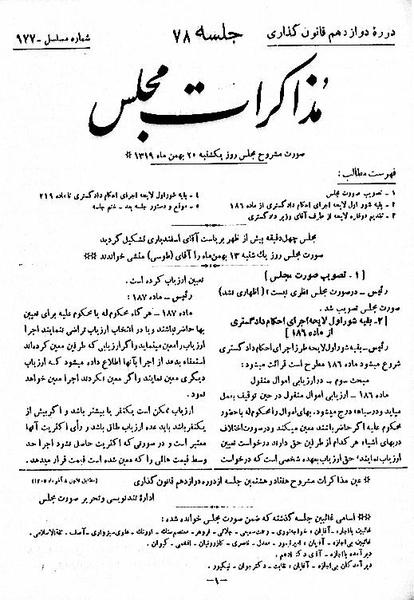 دوره دوازدهم قانون گذاری
جلسه ۷۸
شماره مسلسل - ۹۲۷
مذاکرات مجلس
صورت مشروح مجلس روز یکشنبه ۲۰ بهمن ماه ۱۳۱۹ *
فهرست مطالب:
۱ - تصویب صورت مجلس
۲ - بقیه شور اول لایحه اجرای احکام دادگستری از ماده ۱۸۶
۳ - تقدیم دو فقره لایحه از طرف آقای وزیر دادگستری
۴ - بقیه شور اول لایحه اجرای احکام دادگستری تا ماده ۲۱۹
۵ - موقع و دستور جلسه بعد - ختم جلسه
مجلس چهل دقیقه پیش از ظهر بریاست آقای اسفندیاری تشکیل گردید
صورت مجلس روز یک شنبه ۱۳ بهمن ماه را آقای (طوسی) منشی خواندند
[ ۱ - تصویب صورت مجلس ]
رئیس - در صورت مجلس نظری نیست؟ (اظهاری نشد)
صورت مجلس تصویب شد.
[ ۲ - بقیه شور اول لایحه اجرای احکام دادگستری
از ماده ۱۸۶ ]
رئیس - بقیه شور اول لایحه طرز اجرای احکام دادگستری
شروع میشود ماده ۱۸۶ مطرح است قرائت میشود:
مبحث سوم - در ارزیابی اموال منقول
ماده ۱۸۶ - ارزیابی اموال منقول در حین توقیف بعمل
میآید و در سیاهه درج میشود. بهای اموال را محکوم له یا حضور
محکوم علیه اگر حاضر باشند معین میکند و در صورت اختلاف
در بهای اشیاء هر کدام از طرفین حق دارد درخواست تعیین
ارزیاب نمایند؛ حق ارزیاب بعهده شخصی است که درخواست
تعیین ارزیاب کرده است.
رئیس - ماده ۱۸۷:
ماده ۱۸۷ - هر گاه محکوم له یا محکوم علیه برای تعیین
بها حاضر نباشند و یا در انتخاب ارزیاب تراضی ننمایند اجرا
ارزیاب را معین مینماید و اگر ارزیابی که طرفین معین کرده‌اند
استفاء بدهد از اجرا بآنها اطلاع داده میشود که ارزیاب
دیگری معین نمایند و اگر معین نکردند اجرا معین خواهد
نمود.
ارزیاب ممکن است یکنفر یا بیشتر باشد و اگر بیش از
یکنفر باشد باید عده ارزیاب طاق باشد و رأی اکثریت آنها
معتبر است و در صورتی که اکثریت حاصل نشود اجرا حد
وسط قیمت هائی را که معین شده است قیمت قرار میدهد.
* عین مذاکرات مشروح هفتاد و هشتمین جلسه از دوره دوازدهم قانون گذاری
اداره تندنویسی و تحریر صورت مجلس
* اسامی غائبین جلسه گذشته که ضمن صورت مجلس خوانده شده:
- ۱ -